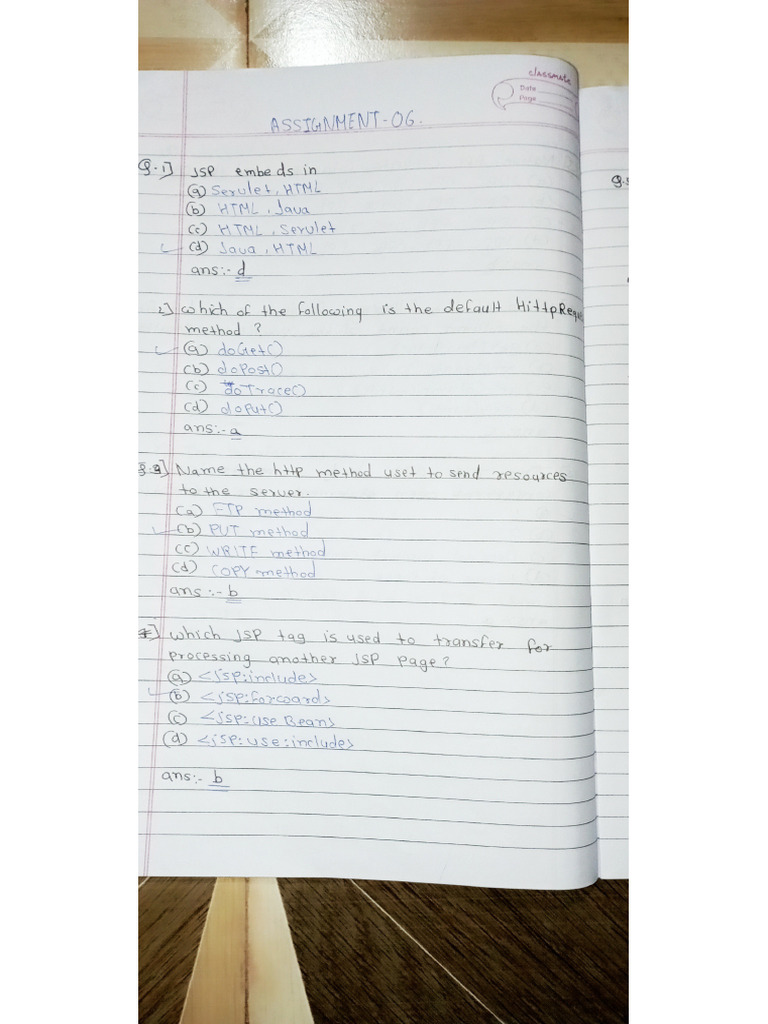 classmate
Date
Page
ASSIGNMENT-06.
Q.1] JSP embeds in
(a) Servlet, HTML
(b) HTML, Java
(c) HTML, Servlet
(d) Java, HTML
ans:- d
2] Which of the following is the default HittpReque
method ?
(a) doGet()
(b) doPost()
(c) doTrace()
(d) doPut()
ans:- a
3] Name the http method uset to send resources
to the server.
(a) FTP method
(b) PUT method
(c) WRITE method
(d) COPY method
ans :- b
which JSP tag is used to transfer for
processing another JSP page?
(a) <jsp:include>
(b) <jsp:forward>
(c) <jsp:Use Bean>
(d) <jsp:use:include>
ans:- b